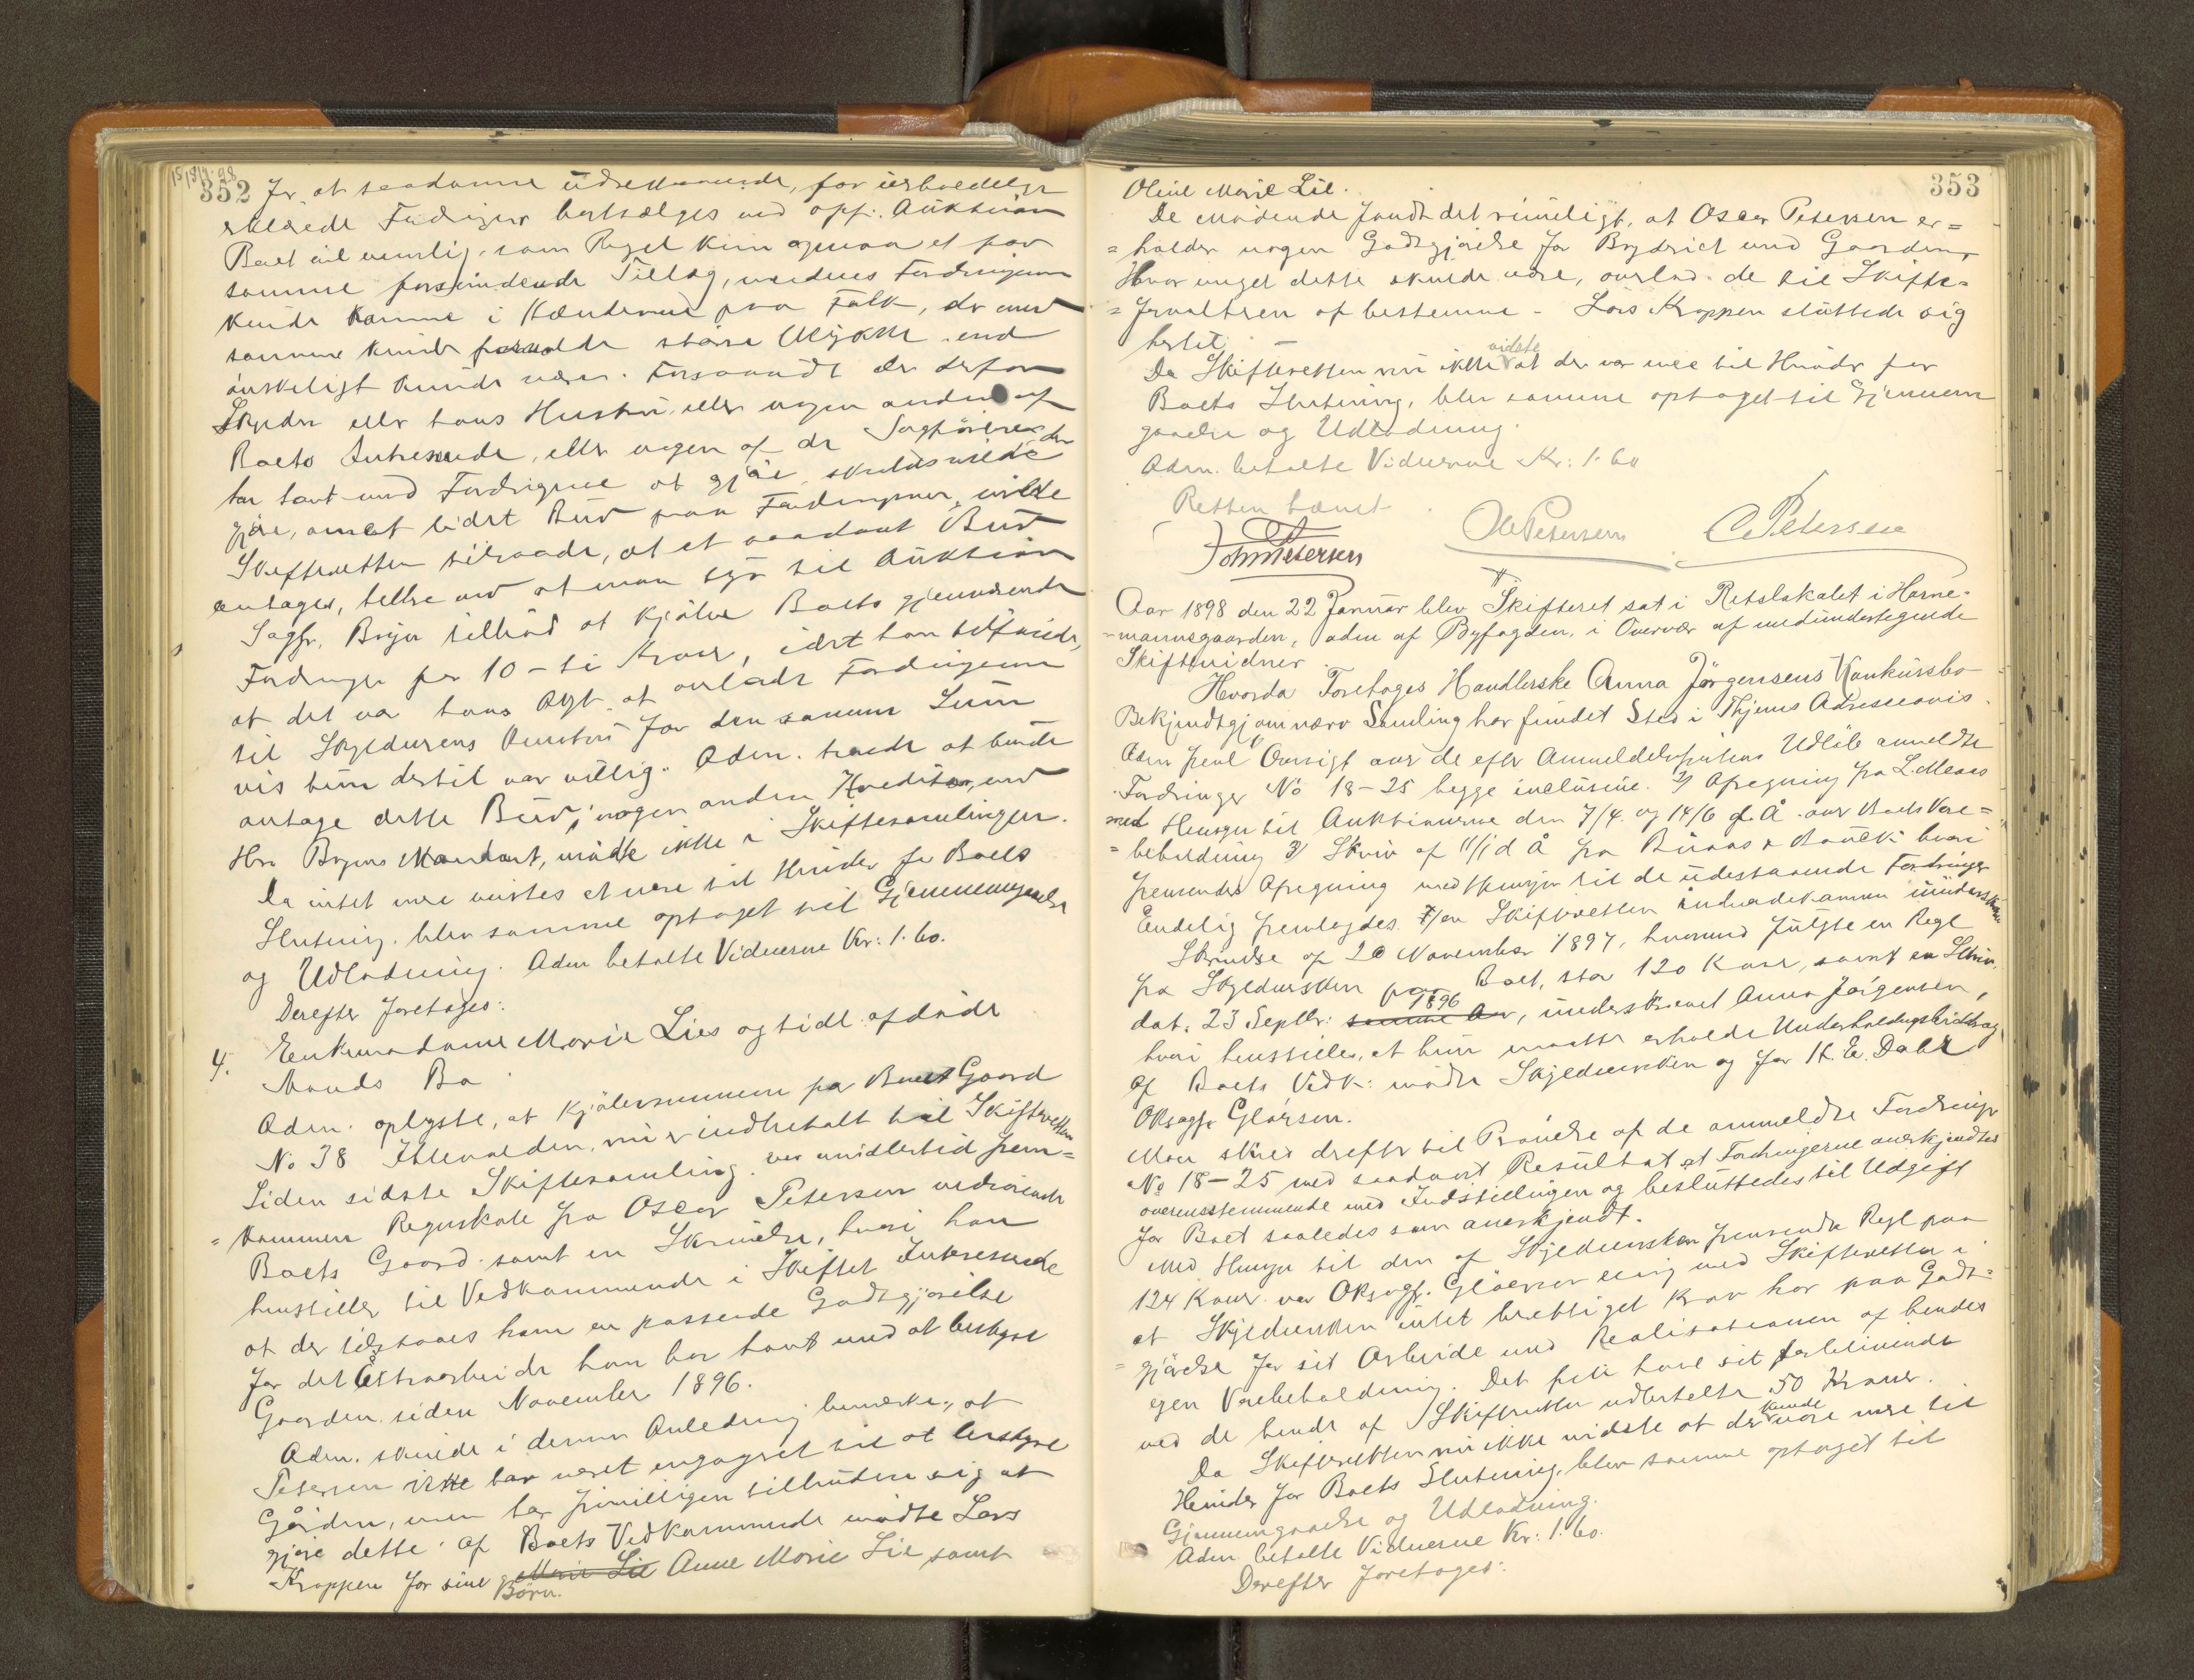 15/1 98
352 for at saadanne udestaaende, for uerholdelige
erklærede Fordringer bortsælges ved opf. Auktion
Boet vil nemlig som Regel kun opnaa et par
samme forsvindende Tillæg, medens Fordringerne
kunde komme i Hænderne paa Folk, der med
samme kunde forvolde større Ulykke end
ønskeligt kunde være. Forsaavidt der derfor
Skyldn eller hans Hustru eller nogen anden af
Boets Interesserede, eller nogen af de Sagførere der
har havt med Fordringerne at gjøre, skulde ville
gjøre, om et lidet Bud paa Fordringerne, vilde
Skifteretten tilraade, at et saadant Bud
antages, heller end at man gjør til Auktion
Sagfr. Bryn tilbød at kjøbe Boets gjenværende
Fordringer for 10 - ti Kroner, idet han tilføiede,
at det var hans Agt at overlade Fordringerne
til Skyldnerens Hustru for den samme Sum
vis hun dertil var villig. Adm. troede at burde
antage dette Bud; nogen anden Kreditor, end
Hr. Bryns Mandant, mødte ikke i Skiftesamlingen.
Da intet mere vistes at være til Hinder for Boets
Slutning, blev samme optaget til Gjennemgaaelse
og Udlodning. Adm betalte Vidnerne Kr: 1.60.
Derefter foretages:
4. Enkemadame Marie Lies og tidl. afdøde
Mands Bo
Adm. oplyste, at Kjøbesummen for Boets Gaard
No 38 Ihlevolden, nu er indbetalt til Skifteretten
Siden sidste Skiftesamling var imidlertid frem=
=kommen Regnskab fra Oscar Petersen vedrørende
Boets Gaard samt en Skrivelse, hvori han
henstiller til Vedkommende i Skiftet Interesserede
at der tilstaaes ham en passende Godtgjørelse
for det Extraarbeide han har havt med at bestyre
Gaarden siden November 1896.
Adm. skulde i denne Anledning bemærke, at
Petersen ikke har været engageret til at bestyre
Gården, men har frivilligen tilbuden sig at
gjøre dette. Af Boets Vedkommende mødte Lars
Kroppen for sine Børn. Marie Lie Anne Marie Lie samt
353
Oline Marie Lie.
De mødende fandt det rimeligt, at Oscar Petersen er=
=holder nogen Godtgjørelse for Bryderiet med Gaarden,
Hvor meget dette skulde være, overlod de til Skifte=
=forvalteren at bestemme - Lars Kroppen sluttede sig
hertil.
Da Skifteretten nu ikke vidste at der var mere til Hinder for
Boets Slutning, blev samme optaget til Gjennem
gaaelse og Udlodning.
Adm. betalte Vidnerne Kr: 1.60
Retten hævet
John Petersen Ole Petersen C Petersen
Aar 1898 den 22 Januar blev Skifteret sat i Retslokalet i Horne=
=mannsgaarden, adm af Byfogden, i Overvær af medundertegnede
Skiftevidner
Hvorda Foretages Handlerske Anna Jørgensens Konkursbo
Bekjendtgj om nærv Samling har fundet Sted i Thjems Adresseavis.
Adm freml Oversigt over de efter Anmeldelsesfristens Udløb anmeldte
Fordringer No 18-25 begge inclusive. 2) Afregning fra L. Mears
med Hensyn til Auktionerne den 7/4. og 14/6 f. Å. over Boets Vare=
=beholdning 3/ Skriv af 11/1 d Å fra Buaas & Bauck hvori
fremsendes Afregning med Hensyn til de udestaaende Fordringer
Endelig fremlagdes en Skifteretten ihændekommen underskreven
Skrivelse af 20 November 1897, hvormed fulgte en Regn
fra Skyldnersken paa Boet, stor 120 Kroner, samt en Skriv.
dat. 23 Septbr: samme Aar 1896, underskrevet Anna Jørgensen,
hvori henstilles, at hun maatte erholde Underholdningsbidrag
Af Boets Vedk: mødte Skyldnersken og for H. E. Dahl
Oksagfr. Gløersen.
Man skred derefter til Prøvelse af de anmeldte Fordringer
No 18-25 med saadant Resultat at Fordringerne anerkjendtes
overensstemmende med Indstillingen og besluttedes til Udgift
for Boet saaledes som anerkjendt.
Med Hensyn til den af Skyldnersken fremsendte Regn paa
124 Kroner var Oksagfr. Gløersen enig med Skifteretten i
at Skyldnersken intet berettiget Krav har paa Godt=
=gjørelse for sit Arbeide med Realisationen af hendes
egen Varebeholdning. Det fik have sit forblivende
ved de hende af Skifteretten udbetalte 50 Kroner.
Da Skifteretten nu ikke vidste at der kunde være mere til
Hinder for Boets Slutning, blev samme optaget til
Gjennemgaaelse og Udlodning.
Adm betalte Vidnerne Kr: 1.60.
Derefter foretages: